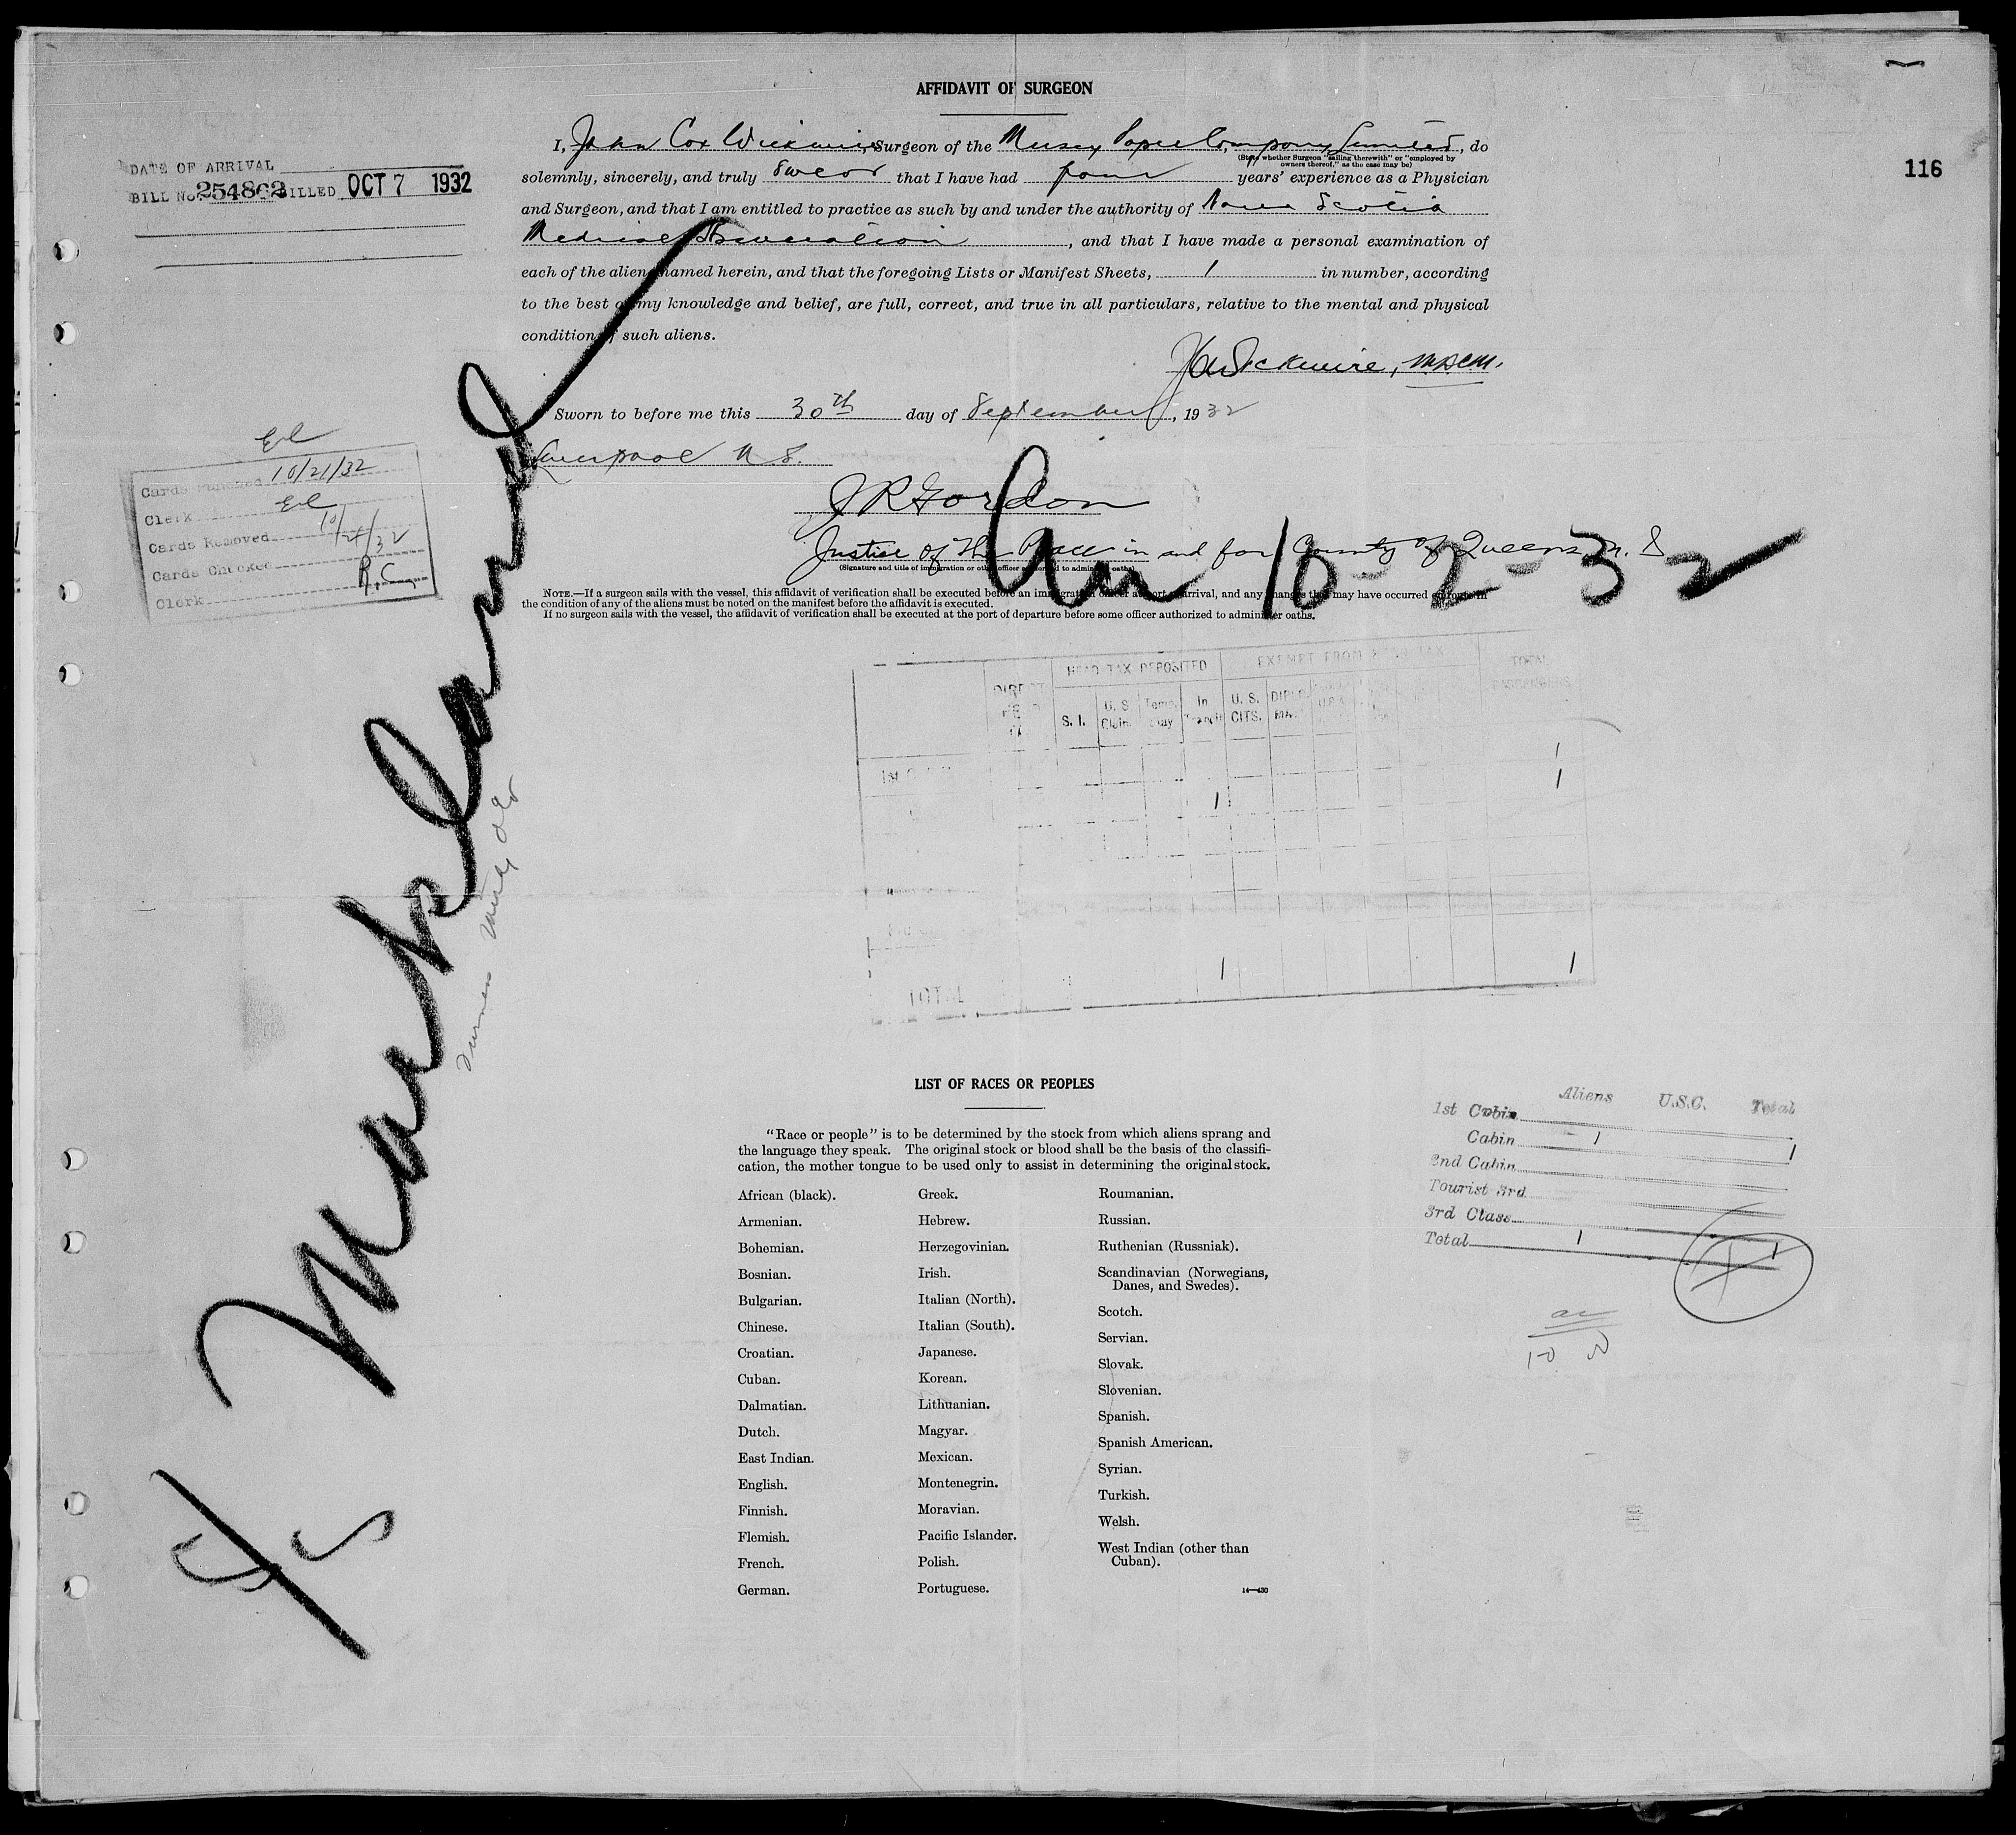 AFFIDAVIT OF SURGEON
I, John Cox Wickwire, Surgeon of the Mersey Paper Company, Limited, do
(State whether Surgeon "sailing therewith" or "employed by
owners thereof," as the case may be)
solemnly, sincerely, and truly swear that I have had four years' experience as a Physician
and Surgeon, and that I am entitled to practice as such by and under the authority of Nova Scotia
Medical Association, and that I have made a personal examination of
each of the aliens named herein, and that the foregoing Lists or Manifest Sheets, 1 in number, according
to the best of my knowledge and belief, are full, correct, and true in all particulars, relative to the mental and physical
condition of such aliens.
J C Wickwire, M.D.C.M.
Sworn to before me this 30th day of September, 1932
Liverpool N.S.
J R Gordon
Justice of the Peace in and for County of Queens N. S
(Signature and title of immigration or other officer authorized to administer oaths)
NOTE.—If a surgeon sails with the vessel, this affidavit of verification shall be executed before an immigration officer at port of arrival, and any changes that may have occurred en route in
the condition of any of the aliens must be noted on the manifest before the affidavit is executed.
If no surgeon sails with the vessel, the affidavit of verification shall be executed at the port of departure before some officer authorized to administer oaths.
116
DATE OF ARRIVAL
BILL No. 254862 BILLED OCT 7 1932
Cards Punched 10/21/32
Clerk
Cards Removed
Cards Checked
Clerk R.C.
S/S Markland
Furness
Arr 10-2-32
HEAD TAX DEPOSITED EXEMPT FROM HEAD TAX TOTAL PASSENGERS
S. I. U. S. Claim. Temp. Stay In Transit U. S. CITS. DIPLO MA
1st
1
1
1
TOTAL 1 1
LIST OF RACES OR PEOPLES
"Race or people" is to be determined by the stock from which aliens sprang and
the language they speak. The original stock or blood shall be the basis of the classifi-
cation, the mother tongue to be used only to assist in determining the original stock.
African (black).
Armenian.
Bohemian.
Bosnian.
Bulgarian.
Chinese.
Croatian.
Cuban.
Dalmatian.
Dutch.
East Indian.
English.
Finnish.
Flemish.
French.
German.
Greek.
Hebrew.
Herzegovinian.
Irish.
Italian (North).
Italian (South).
Japanese.
Korean.
Lithuanian.
Magyar.
Mexican.
Montenegrin.
Moravian.
Pacific Islander.
Polish.
Portuguese.
Roumanian.
Russian.
Ruthenian (Russniak).
Scandinavian (Norwegians,
Danes, and Swedes).
Scotch.
Servian.
Slovak.
Slovenian.
Spanish.
Spanish American.
Syrian.
Turkish.
Welsh.
West Indian (other than
Cuban).
14—430
Aliens U.S.C. Total
1st Cabin
Cabin 1 1
2nd Cabin
Tourist 3rd
3rd Class
Total 1 1